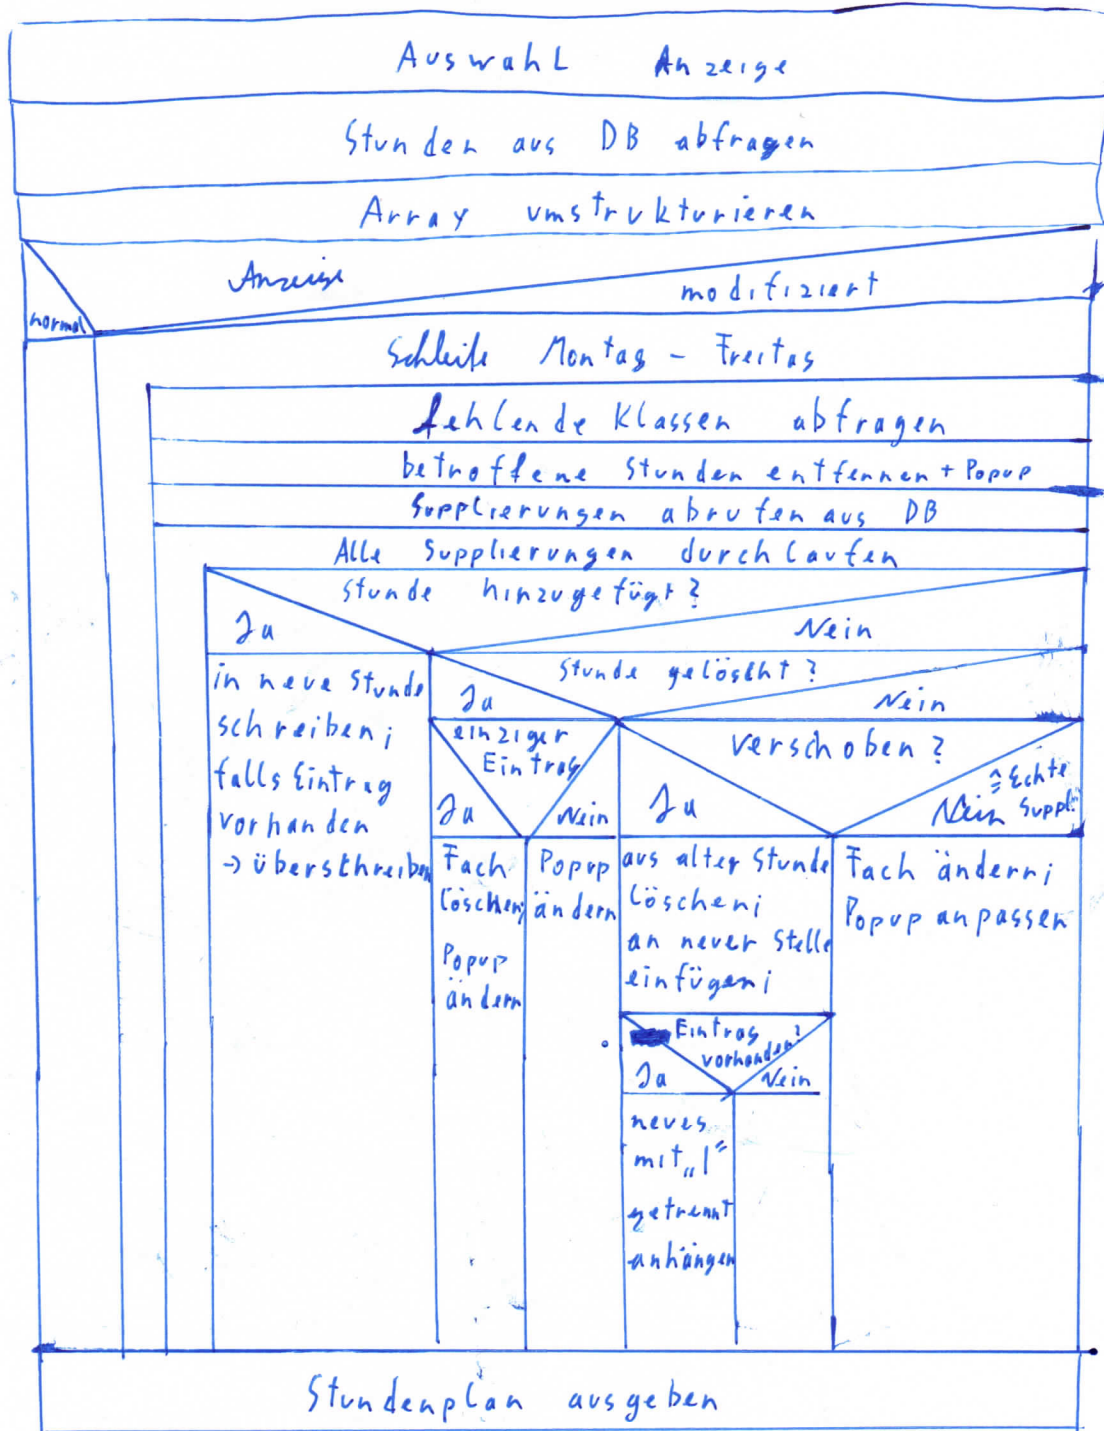 Auswahl Anzeige
Stunden aus DB abfragen
Array umstrukturieren
Anzeige
modifiziert
normal
Schleife Montag - Freitag
fehlende Klassen abfragen
betroffene Stunden entfernen + Popup
Supplierungen abrufen aus DB
Alle Supplierungen durchlaufen
Stunde hinzugefügt?
Ja
Nein
Stunde gelöscht?
Ja
Nein
in neue Stunde
schreiben;
falls Eintrag
vorhanden
-> überschreiben
einziger
Eintrag
Ja
Nein
Fach
löschen;
Popup
ändern
Popup
ändern
verschoben?
Ja
Nein ≙ Echte
Suppl.
aus alter Stunde
löschen;
an neuer Stelle
einfügen;
Eintrag
vorhanden?
Ja
Nein
neues
mit „|“
getrennt
anhängen
Fach ändern;
Popup anpassen
Stundenplan ausgeben